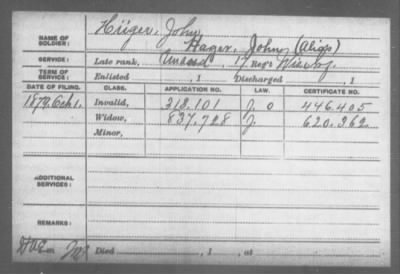 NAME OF SOLDIER: Hüger, John,
Hager, John (Alias)
SERVICE: Late rank, Unassd 17 Reg't Wis Inf.
TERM OF SERVICE: Enlisted , 1 Discharged , 1
DATE OF FILING. CLASS. APPLICATION NO. LAW. CERTIFICATE NO.
1879, Oct 1. Invalid, 313.101 J. O 446.405
Widow, 837.728 J. 620.362
Minor,
ADDITIONAL SERVICES:
REMARKS:
Died , 1 , at